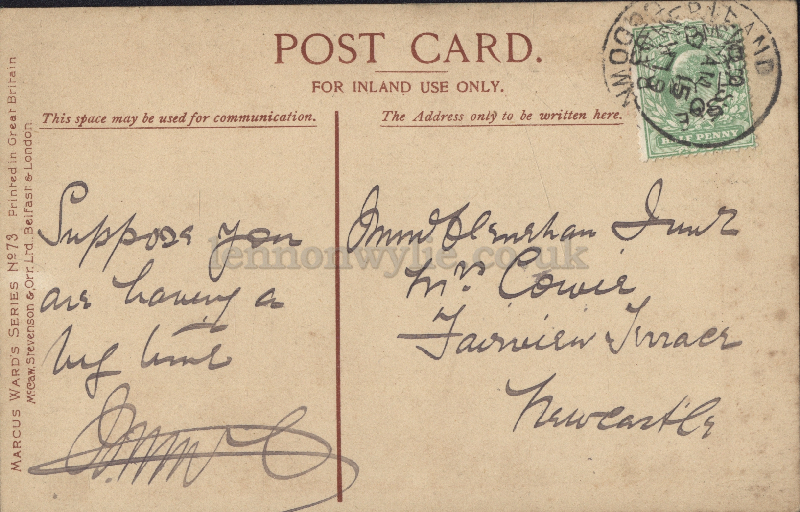 POST CARD.
FOR INLAND USE ONLY.
This space may be used for communication.
The Address only to be written here.
HALF PENNY
MARCUS WARD'S SERIES No 73 Printed in Great Britain
McCaw, Stevenson & Orr, Ltd., Belfast & London.
Suppose you
are having a
big time
Mrs Cowie
Fairview Terrace
Newcastle
lennonwylie.co.uk